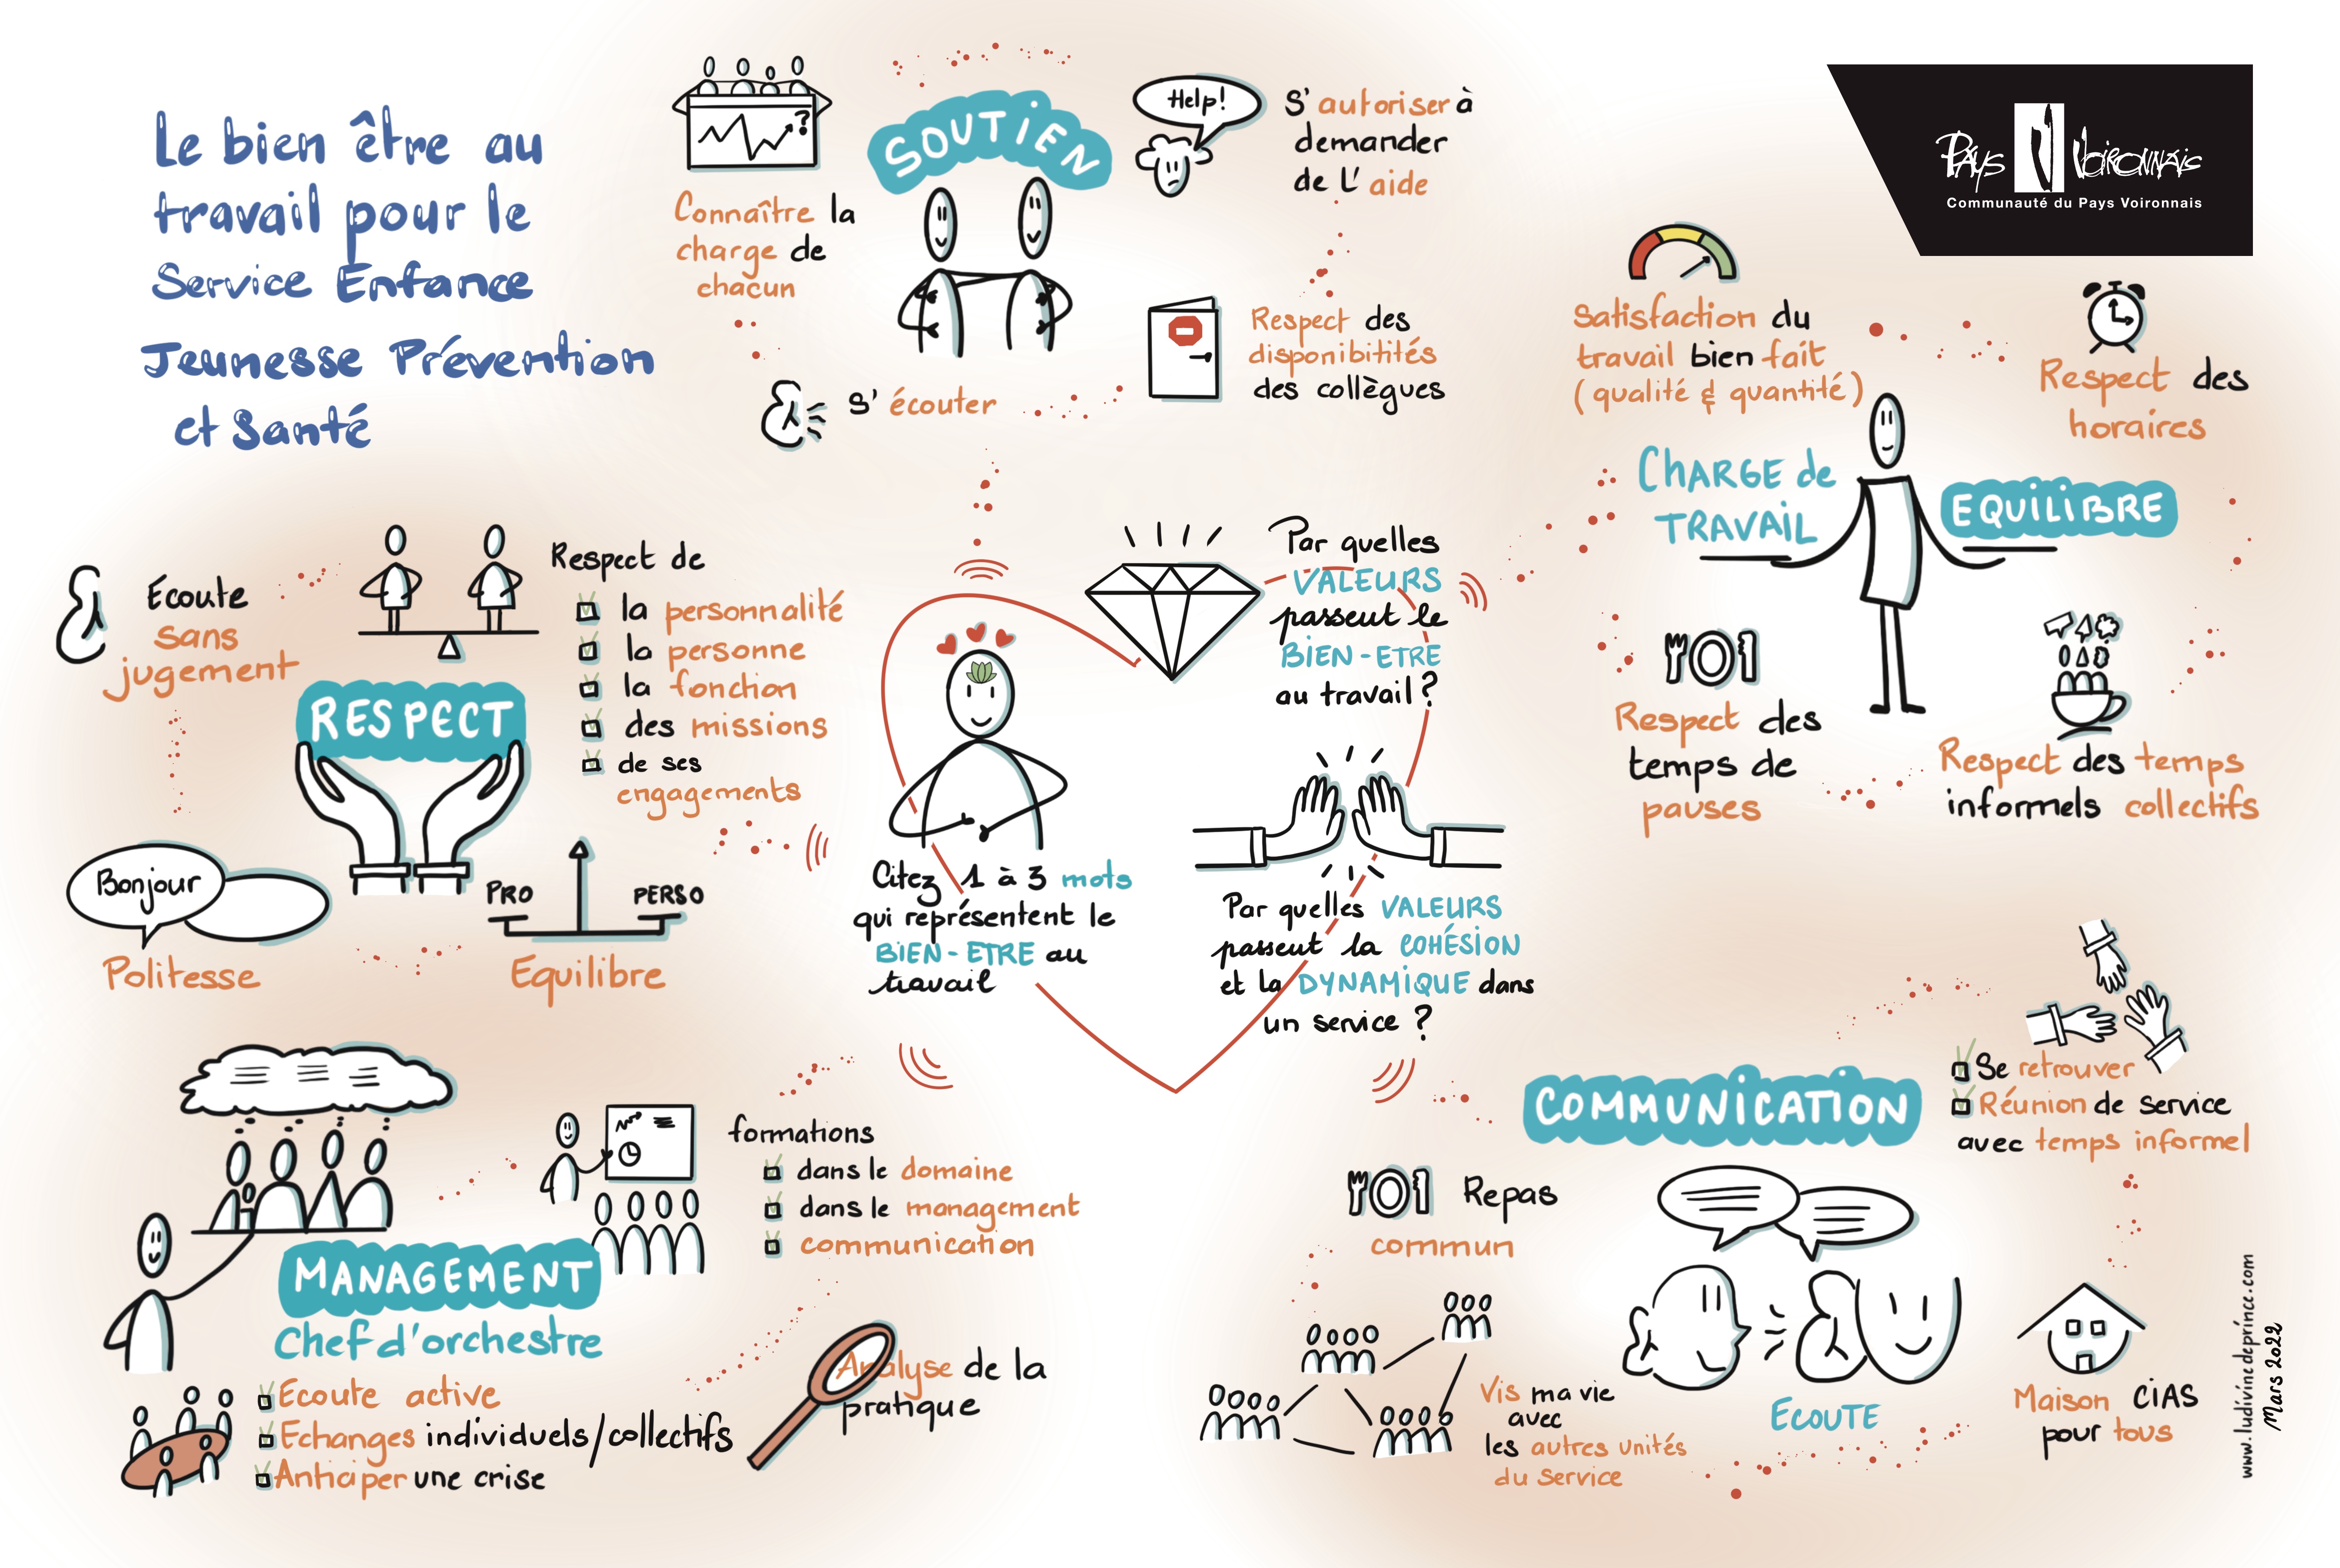 Le bien être au
travail pour le
Service Enfance
Jeunesse Prévention
et Santé
?
Connaître la
charge de
chacun
SOUTIEN
Help!
S'autoriser à
demander
de L'aide
Respect des
disponibitités
des collègues
S'écouter
PAYS VOIRONNAIS
Communauté du Pays Voironnais
Satisfaction du
travail bien fait
(qualité & quantité)
Respect des
horaires
CHARGE de
TRAVAIL
EQUILIBRE
Respect des
temps de
pauses
Respect des temps
informels collectifs
Ecoute
sans
jugement
Respect de
la personnalité
la personne
la fonction
des missions
de ses
engagements
RESPECT
Bonjour
Politesse
PRO
PERSO
Equilibre
Par quelles
VALEURS
passent le
BIEN-ETRE
au travail ?
Citez 1 à 3 mots
qui représentent le
BIEN-ETRE au
travail
Par quelles VALEURS
passent la COHÉSION
et la DYNAMIQUE dans
un service ?
formations
dans le domaine
dans le management
communication
MANAGEMENT
Chef d'orchestre
Ecoute active
Echanges individuels/collectifs
Anticiper une crise
Analyse de la
pratique
COMMUNICATION
Se retrouver
Réunion de service
avec temps informel
Repas
commun
Vis ma vie
avec
les autres unités
du service
ECOUTE
Maison CiAS
pour tous
www.ludivinedeprince.com
Mars 2022